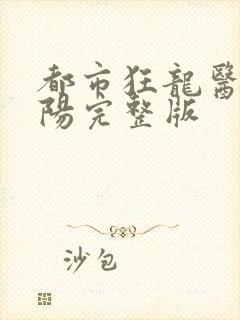 都市狂龍醫
陽完整版
沙包